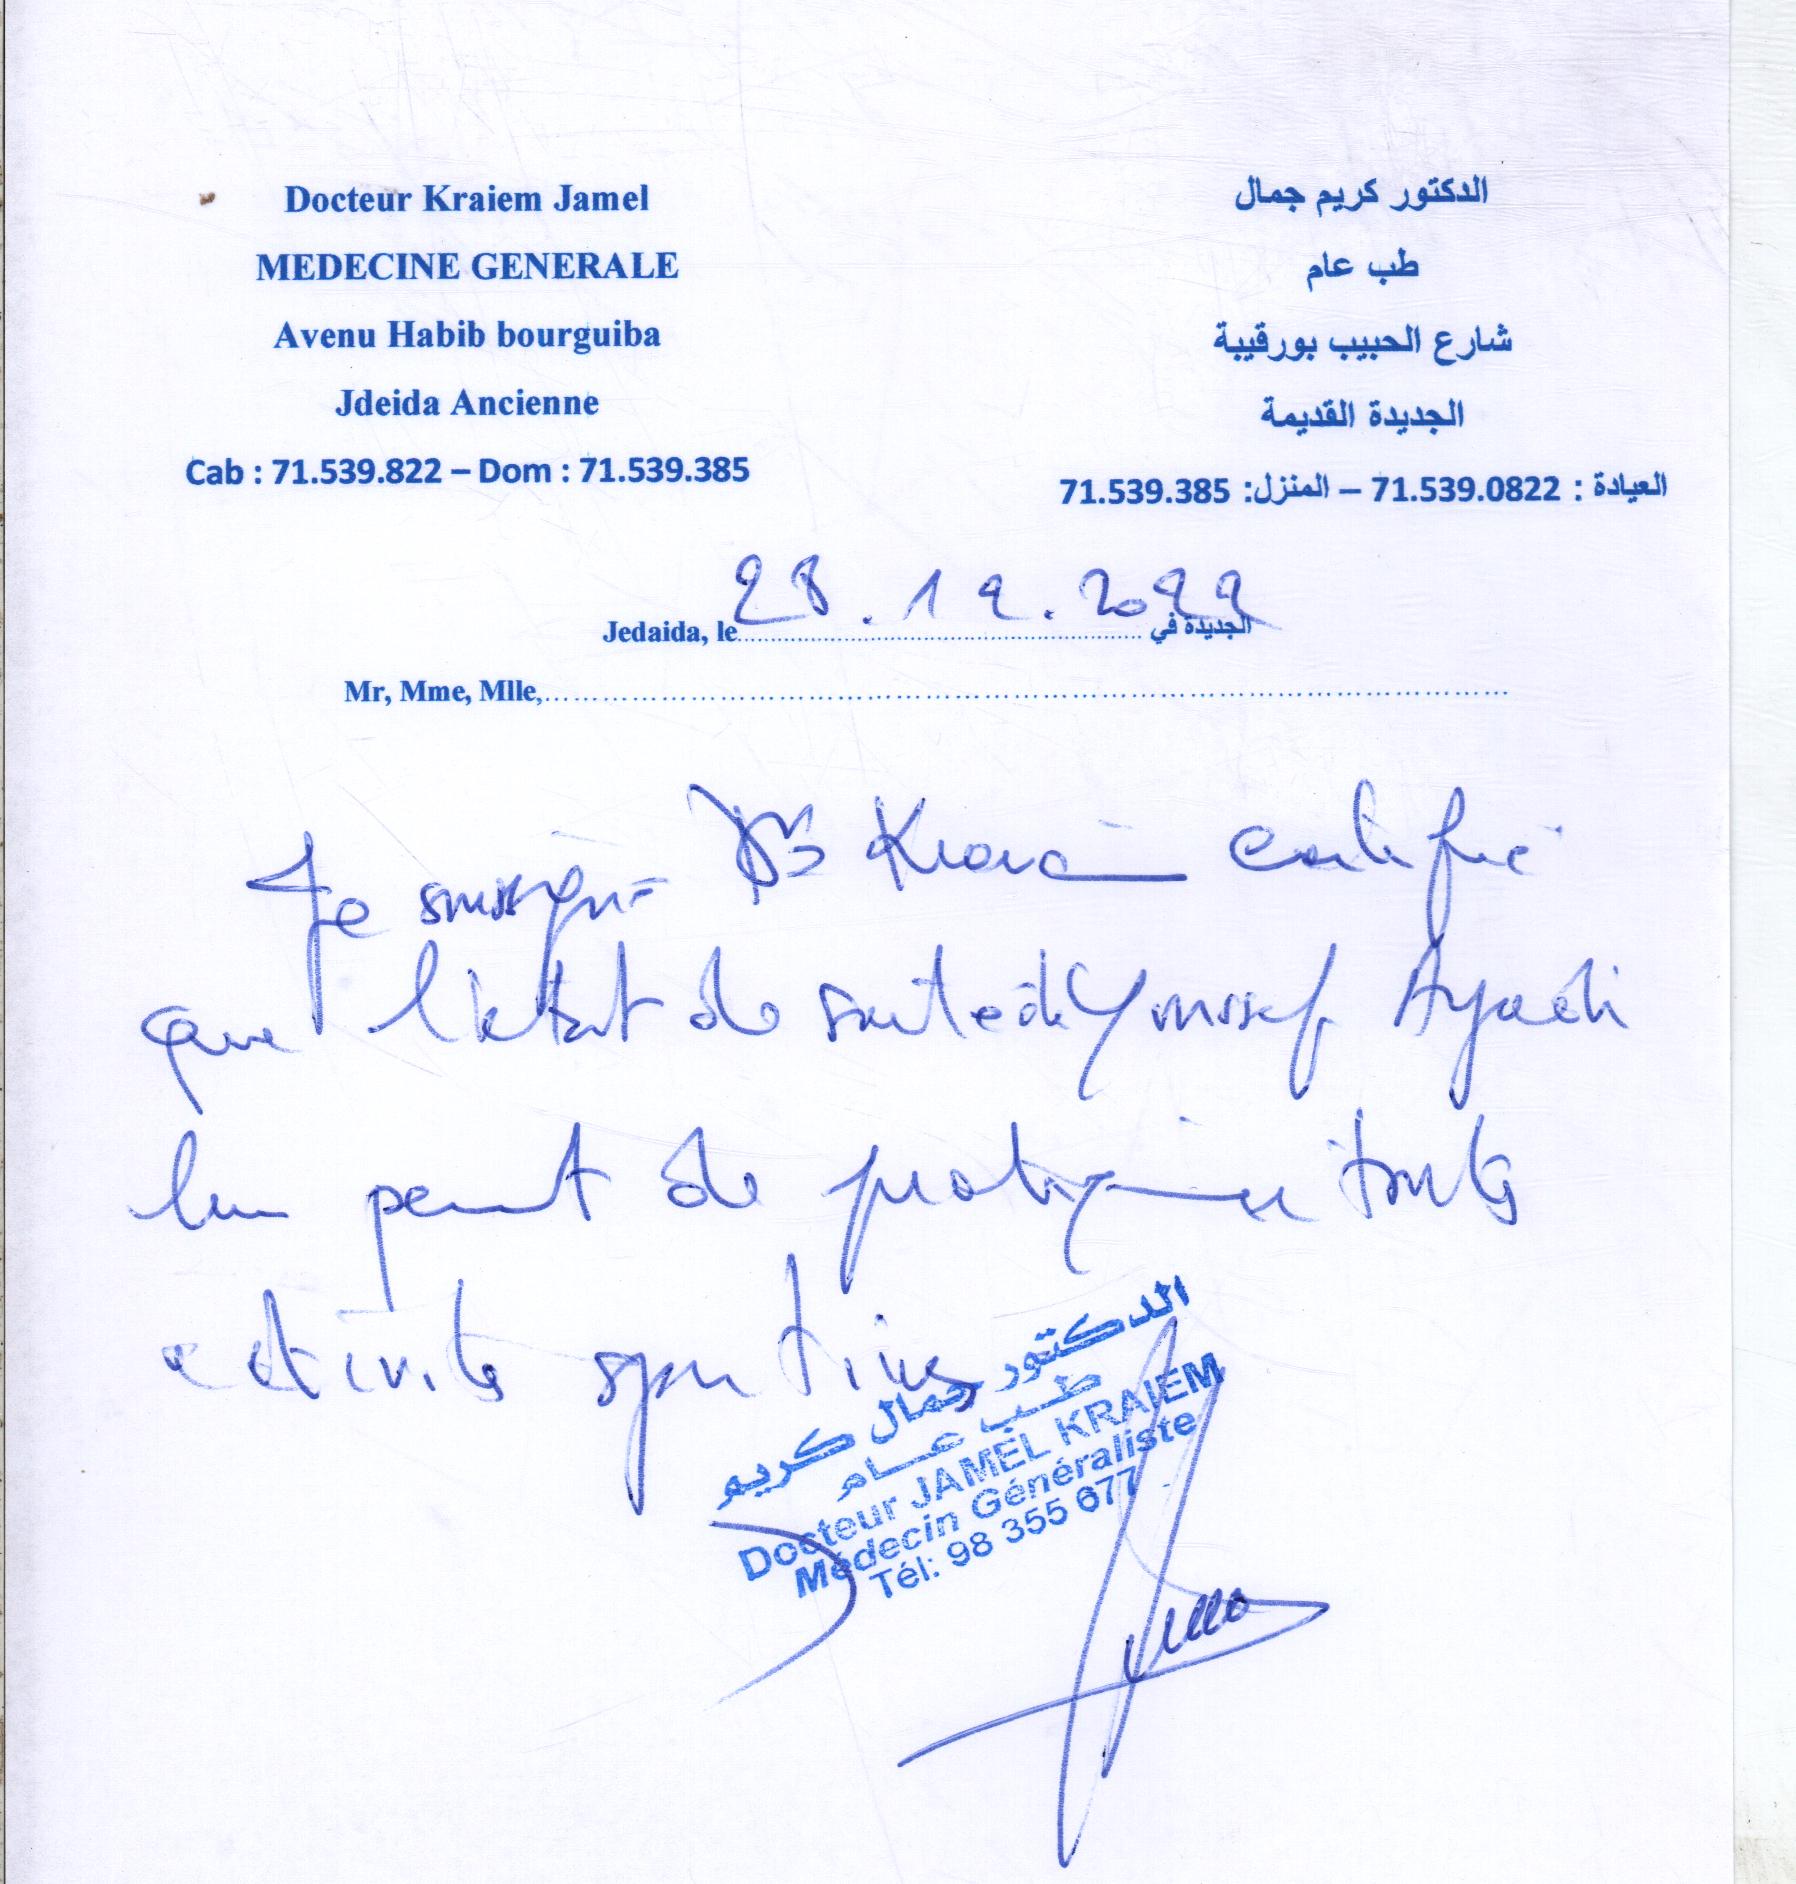 Docteur Kraiem Jamel
MEDECINE GENERALE
Avenu Habib bourguiba
Jdeida Ancienne
Cab : 71.539.822 – Dom : 71.539.385
الدكتور كريم جمال
طب عام
شارع الحبيب بورقيبة
الجديدة القديمة
العيادة : 71.539.0822 – المنزل: 71.539.385
Jedaida, le 28.12.2022 الجديدة في
Mr, Mme, Mlle,
Je soussigné Dr Kraiem certifie
que l'état de santé de Youssef Ayadi
lui permet de pratiquer toutes
activités sportives
الدكتور جمال كريم
طب عام
Docteur JAMEL KRAIEM
Médecin Généraliste
Tél: 98 355 677